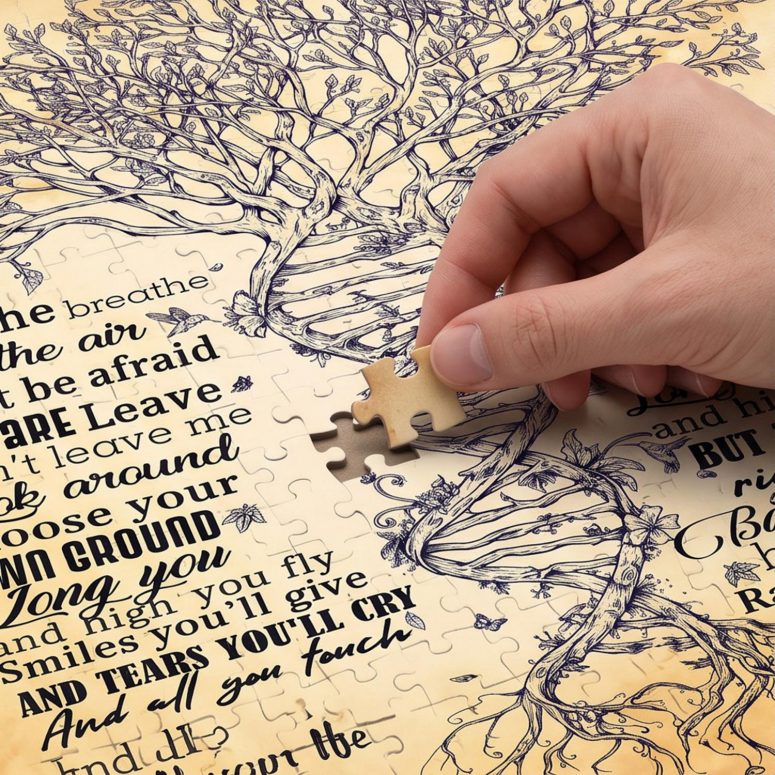 he breathe
the air
t be afraid
ARE Leave
n't leave me
ok around
oose your
WN GROUND
Long you
and high you fly
Smiles you'll give
AND TEARS YOU'LL CRY
And all you touch
and
your
and hi
BUT
ri
Ba
Ra